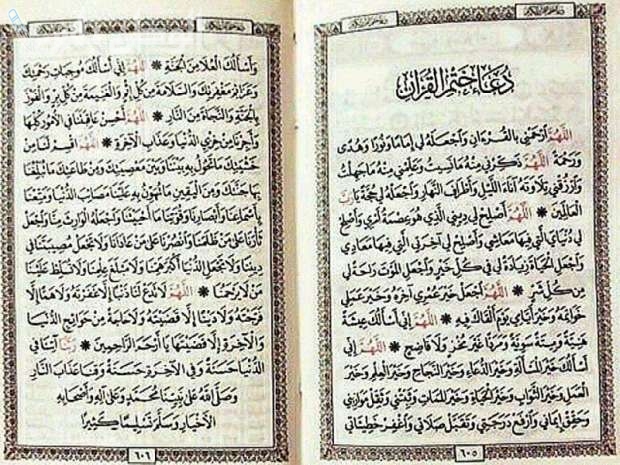 دعاء ختم القرآن
اللهم ارحمني بالقرءان واجعله لي إماما ونورا وهدى
ورحمة * اللهم ذكرني منه مانسيت وعلمني منه ماجهلت
وارزقني تلاوته آناء الليل وأطراف النهار واجعله لي حجة يارب
العالمين * اللهم أصلح لي ديني الذي هو عصمة أمري وأصلح
لي دنياي التي فيها معاشي وأصلح لي آخرتي التي فيها معادي
واجعل الحياة زيادة لي في كل خير واجعل الموت راحة لي
من كل شر * اللهم اجعل خير عمري آخره وخير عملي
خواتمه وخير أيامي يوم ألقاك فيه * اللهم إني أسألك عيشة
هنية وميتة سوية ومردا غير مخز ولا فاضح * اللهم إني
أسألك خير المسألة وخير الدعاء وخير النجاح وخير العلم وخير
العمل وخير الثواب وخير الحياة وخير الممات وثبتني وثقل موازيني
وحقق إيماني وارفع درجتي وتقبل صلاتي واغفر خطيئاتي
٦٠٥
وأسألك العلا من الجنة * اللهم إني أسألك موجبات رحمتك
وعزائم مغفرتك والسلامة من كل إثم والغنيمة من كل بر والفوز
بالجنة والنجاة من النار * اللهم أحسن عاقبتنا في الأمور كلها
وأجرنا من خزي الدنيا وعذاب الآخرة * اللهم اقسم لنا من
خشيتك ماتحول به بيننا وبين معصيتك ومن طاعتك ماتبلغنا
بها جنتك ومن اليقين ماتهون به علينا مصائب الدنيا ومتعنا
بأسماعنا وأبصارنا وقوتنا ما أحييتنا واجعله الوارث منا واجعل
ثأرنا على من ظلمنا وانصرنا على من عادانا ولا تجعل مصيبتنا في
ديننا ولا تجعل الدنيا أكبر همنا ولا مبلغ علمنا ولا تسلط علينا
من لا يرحمنا * اللهم لا تدع لنا ذنبا إلا غفرته ولا هما إلا
فرجته ولا دينا إلا قضيته ولا حاجة من حوائج الدنيا
والآخرة إلا قضيتها يا أرحم الراحمين * ربنا آتنا في
الدنيا حسنة وفي الآخرة حسنة وقنا عذاب النار
وصلى الله على نبينا محمد وعلى آله وأصحابه
الأخيار وسلم تسليما كثيرا
٦٠٦